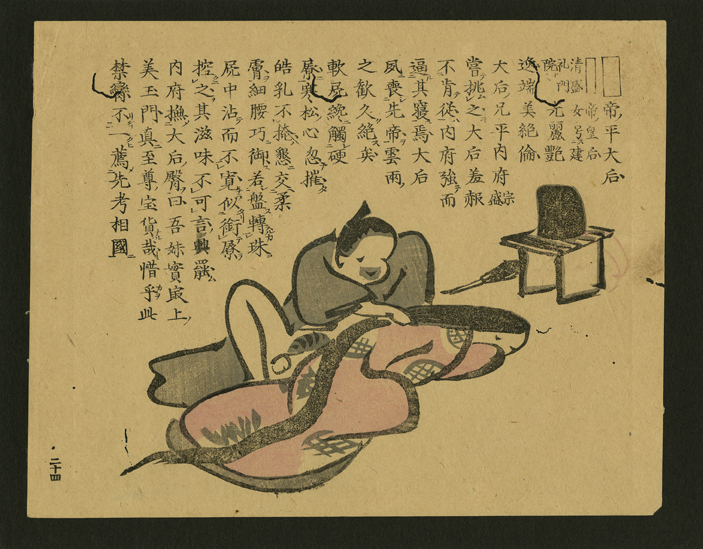 帝平大后
帝皇后
清盛女号建
礼門院 元麗艷
逸端美絶倫
大后兄平内府宗盛
嘗挑之大后羞赧
不肯従内府強而
逼其寝焉大后
夙喪先帝雲雨
之歓久絶矣
軟尻纔觸硬
寒松心忽摧
皓乳不掩懇交柔
膚細腰巧御若盤轉珠
中沾而不寛似銜
控之其滋味不可言興罷
内府撫大后臀曰吾妹實最上
美玉門真至尊宝貨哉惜乎此
禁臠不一薦先考相國
二十四